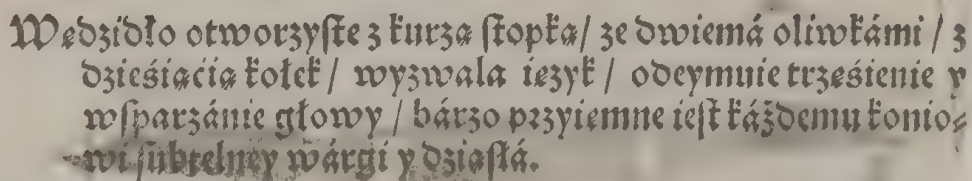 Wędzidło otworzyſte z kurzą ſtopką/ ze dwiemá oliwkámi / z
dzieśiącią kołek / wyzwala ięzyk / odeymuie trzęśienie y
wſparzánie głowy / bárzo przyiemne ieſt káżdemu konio⸗
wi ſubtelney wárgi y dziąſłá.